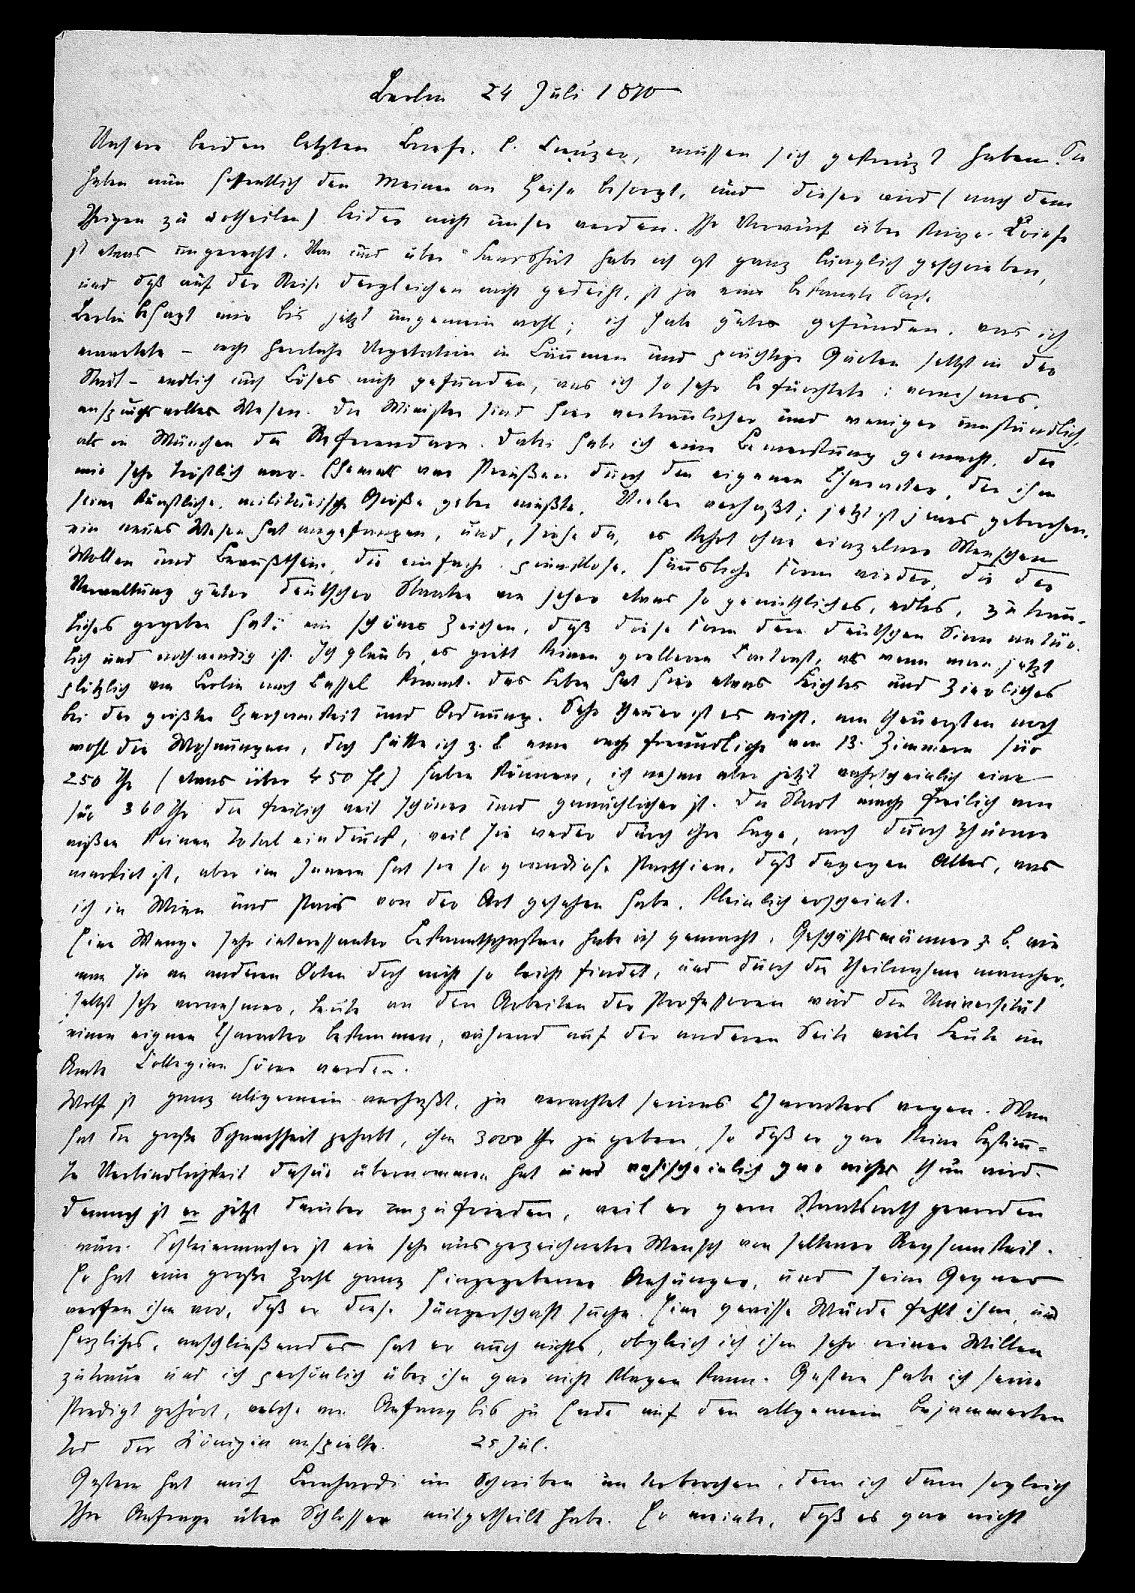 Berlin 24 Juli 1810
Unsere beiden letzten Briefe, l. Creuzer, müssen sich gekreuzt haben. Sie
haben nun hoffentlich den Meinen an Heise besorgt, und dieser wird (nach dem
Ihrigen zu urtheilen) leider nicht unser werden. Ihr Vorwurf über kurze Briefe
ist etwas ungerecht. Von und über Landshut habe ich oft ganz länglich geschrieben,
und daß auf der Reise dergleichen nicht gedeiht, ist ja eine bekannte Sache.
Berlin behagt mir bis jetzt ungemein wohl; ich habe gutes gefunden, was ich
erwartete – recht herrliche Vegetation in Bäumen und prächtige Gärten selbst in der
Stadt – endlich auch Böses nicht gefunden, was ich so sehr befürchtete: vornehmes,
anspruchsvolles Wesen. Die Minister sind hier vertraulicher und weniger umständlich,
als in München die Referendare. Dabei habe ich eine Bemerkung gemacht, die
mir sehr tröstlich war. Ehemals war Preußen durch den eigenen Character, der ihm
seine künstliche, militärische Größe geben mußte, Vielen verhaßt; jetzt ist jenes gebrochen,
ein neues Wesen hat angefangen, und, siehe da, es kehrt ohne einzelner Menschen
Wollen und Bewußtsein, die einfache, prunklose, häusliche Form wieder, die der
Verwaltung guter deutscher Staaten von jeher etwas so gemüthliches, edles, zutrau-
liches gegeben hat: ein schönes Zeichen, daß diese Form dem deutschen Sinn natür-
lich und nothwendig ist. Ich glaube, es gibt keinen grelleren Contrast, als wenn man jetzt
plötzlich von Berlin nach Cassel kommt. Das Leben hat hier etwas Leichtes und Zierliches
bei der größten Sparsamkeit und Ordnung. Sehr theuer ist es nicht, am theuersten noch
wohl die Wohnungen, doch hätte ich z. B. eine recht freundliche von 13 Zimmern für
250 Thr (etwas über 450 fl) haben können, ich nehme aber jetzt wahrscheinlich eine
für 360 Thr die freilich weit schöner und gemächlicher ist. Die Stadt macht freilich von
außen keinen Totaleindruck, weil sie weder durch ihre Lage, noch durch Thürme
markirt ist, aber im Innern hat sie so grandiose Parthien, daß dagegen Alles, was
ich in Wien und Paris von der Art gesehen habe, kleinlich erscheint.
Eine Menge sehr interessanter Bekanntschaften habe ich gemacht, Geschäftsmänner z. B. wie
man sie an anderen Orten doch nicht so leicht findet, und durch die Theilnahme mancher,
selbst sehr vornehmer, Leute an den Arbeiten der Professoren wird die Universität
einen eignen Character bekommen, während auf der anderen Seite viele Leute im
Amte Collegien hören werden.
Wolf ist ganz allgemein verhaßt, ja verachtet seines Characters wegen. Man
hat die große Schwachheit gehabt, ihm 3000 Thr zu geben, so daß er gar keine bestimm-
te Verbindlichkeit dafür übernommen hat und wahrscheinlich gar nichts thun wird.
Dennoch ist er jetzt darüber unzufrieden, weil er gern Staatsrath geworden
wäre. Schleiermacher ist ein sehr ausgezeichneter Mensch von seltener Regsamkeit.
Er hat eine große Zahl ganz hingegebener Anhänger, und seine Gegner
werfen ihm vor, daß er diese Jüngerschaft suche. Eine gewisse Würde fehlt ihm, und
herzliches, anschließendes hat er auch nichts, obgleich ich ihm sehr reinen Willen
zutraue und ich persönlich über ihn gar nicht klagen kann. Gestern habe ich seine
Predigt gehört, welche von Anfang bis zu Ende auf den allgemein bejammerten
Tod der Königin anspielte. 25 Jul.
Gestern hat mich Bernhardi im Schreiben unterbrochen, dem ich dann sogleich
Ihre Anfrage über Schlosser mitgetheilt habe. Er meinte, daß es gar nicht